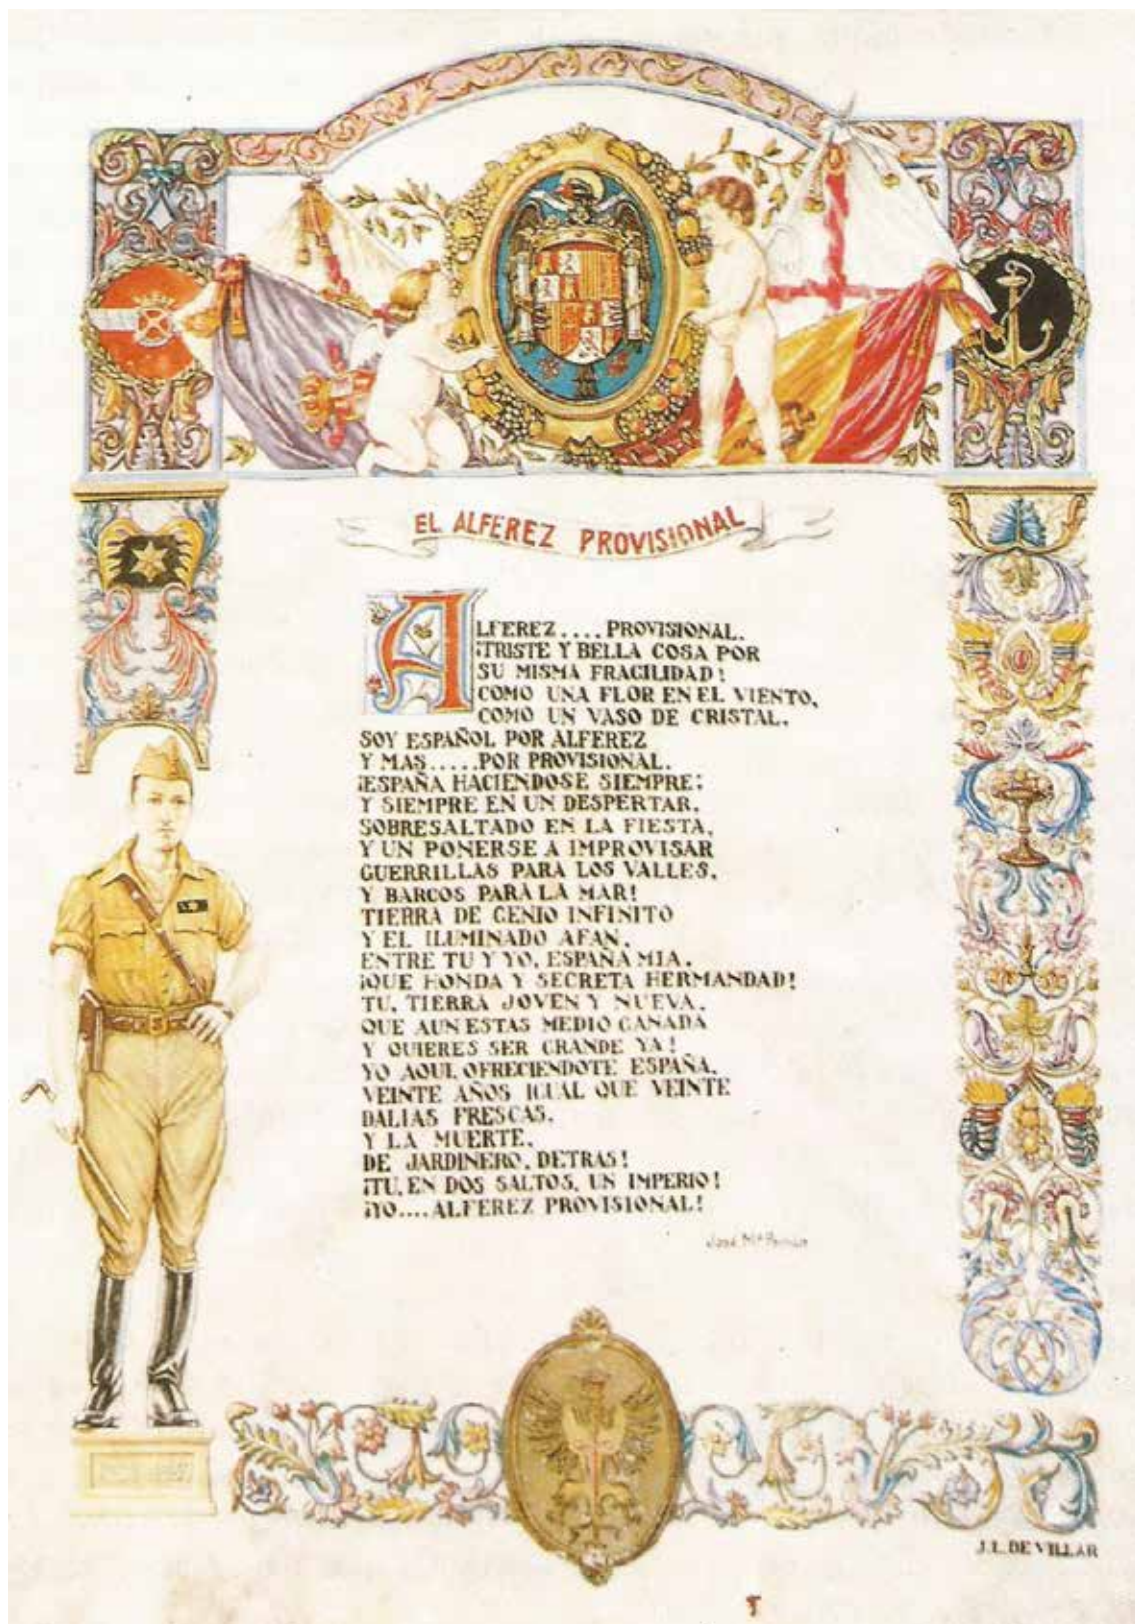 EL ALFEREZ PROVISIONAL
ALFEREZ.... PROVISIONAL.
¡TRISTE Y BELLA COSA POR
SU MISMA FRAGILIDAD!
COMO UNA FLOR EN EL VIENTO,
COMO UN VASO DE CRISTAL.
SOY ESPAÑOL POR ALFEREZ
Y MAS.....POR PROVISIONAL.
¡ESPAÑA HACIENDOSE SIEMPRE;
Y SIEMPRE EN UN DESPERTAR,
SOBRESALTADO EN LA FIESTA,
Y UN PONERSE A IMPROVISAR
GUERRILLAS PARA LOS VALLES,
Y BARCOS PARA LA MAR!
TIERRA DE GENIO INFINITO
Y EL ILUMINADO AFAN,
ENTRE TU Y YO, ESPAÑA MIA,
¡QUE HONDA Y SECRETA HERMANDAD!
TU, TIERRA JOVEN Y NUEVA,
QUE AUN ESTAS MEDIO GANADA
Y QUIERES SER GRANDE YA!
YO AQUI, OFRECIENDOTE ESPAÑA,
VEINTE AÑOS IGUAL QUE VEINTE
DALIAS FRESCAS,
Y LA MUERTE,
DE JARDINERO, DETRAS!
¡TU, EN DOS SALTOS, UN IMPERIO!
¡YO....ALFEREZ PROVISIONAL!
José Mª Pemán
J.L. DE VILLAR